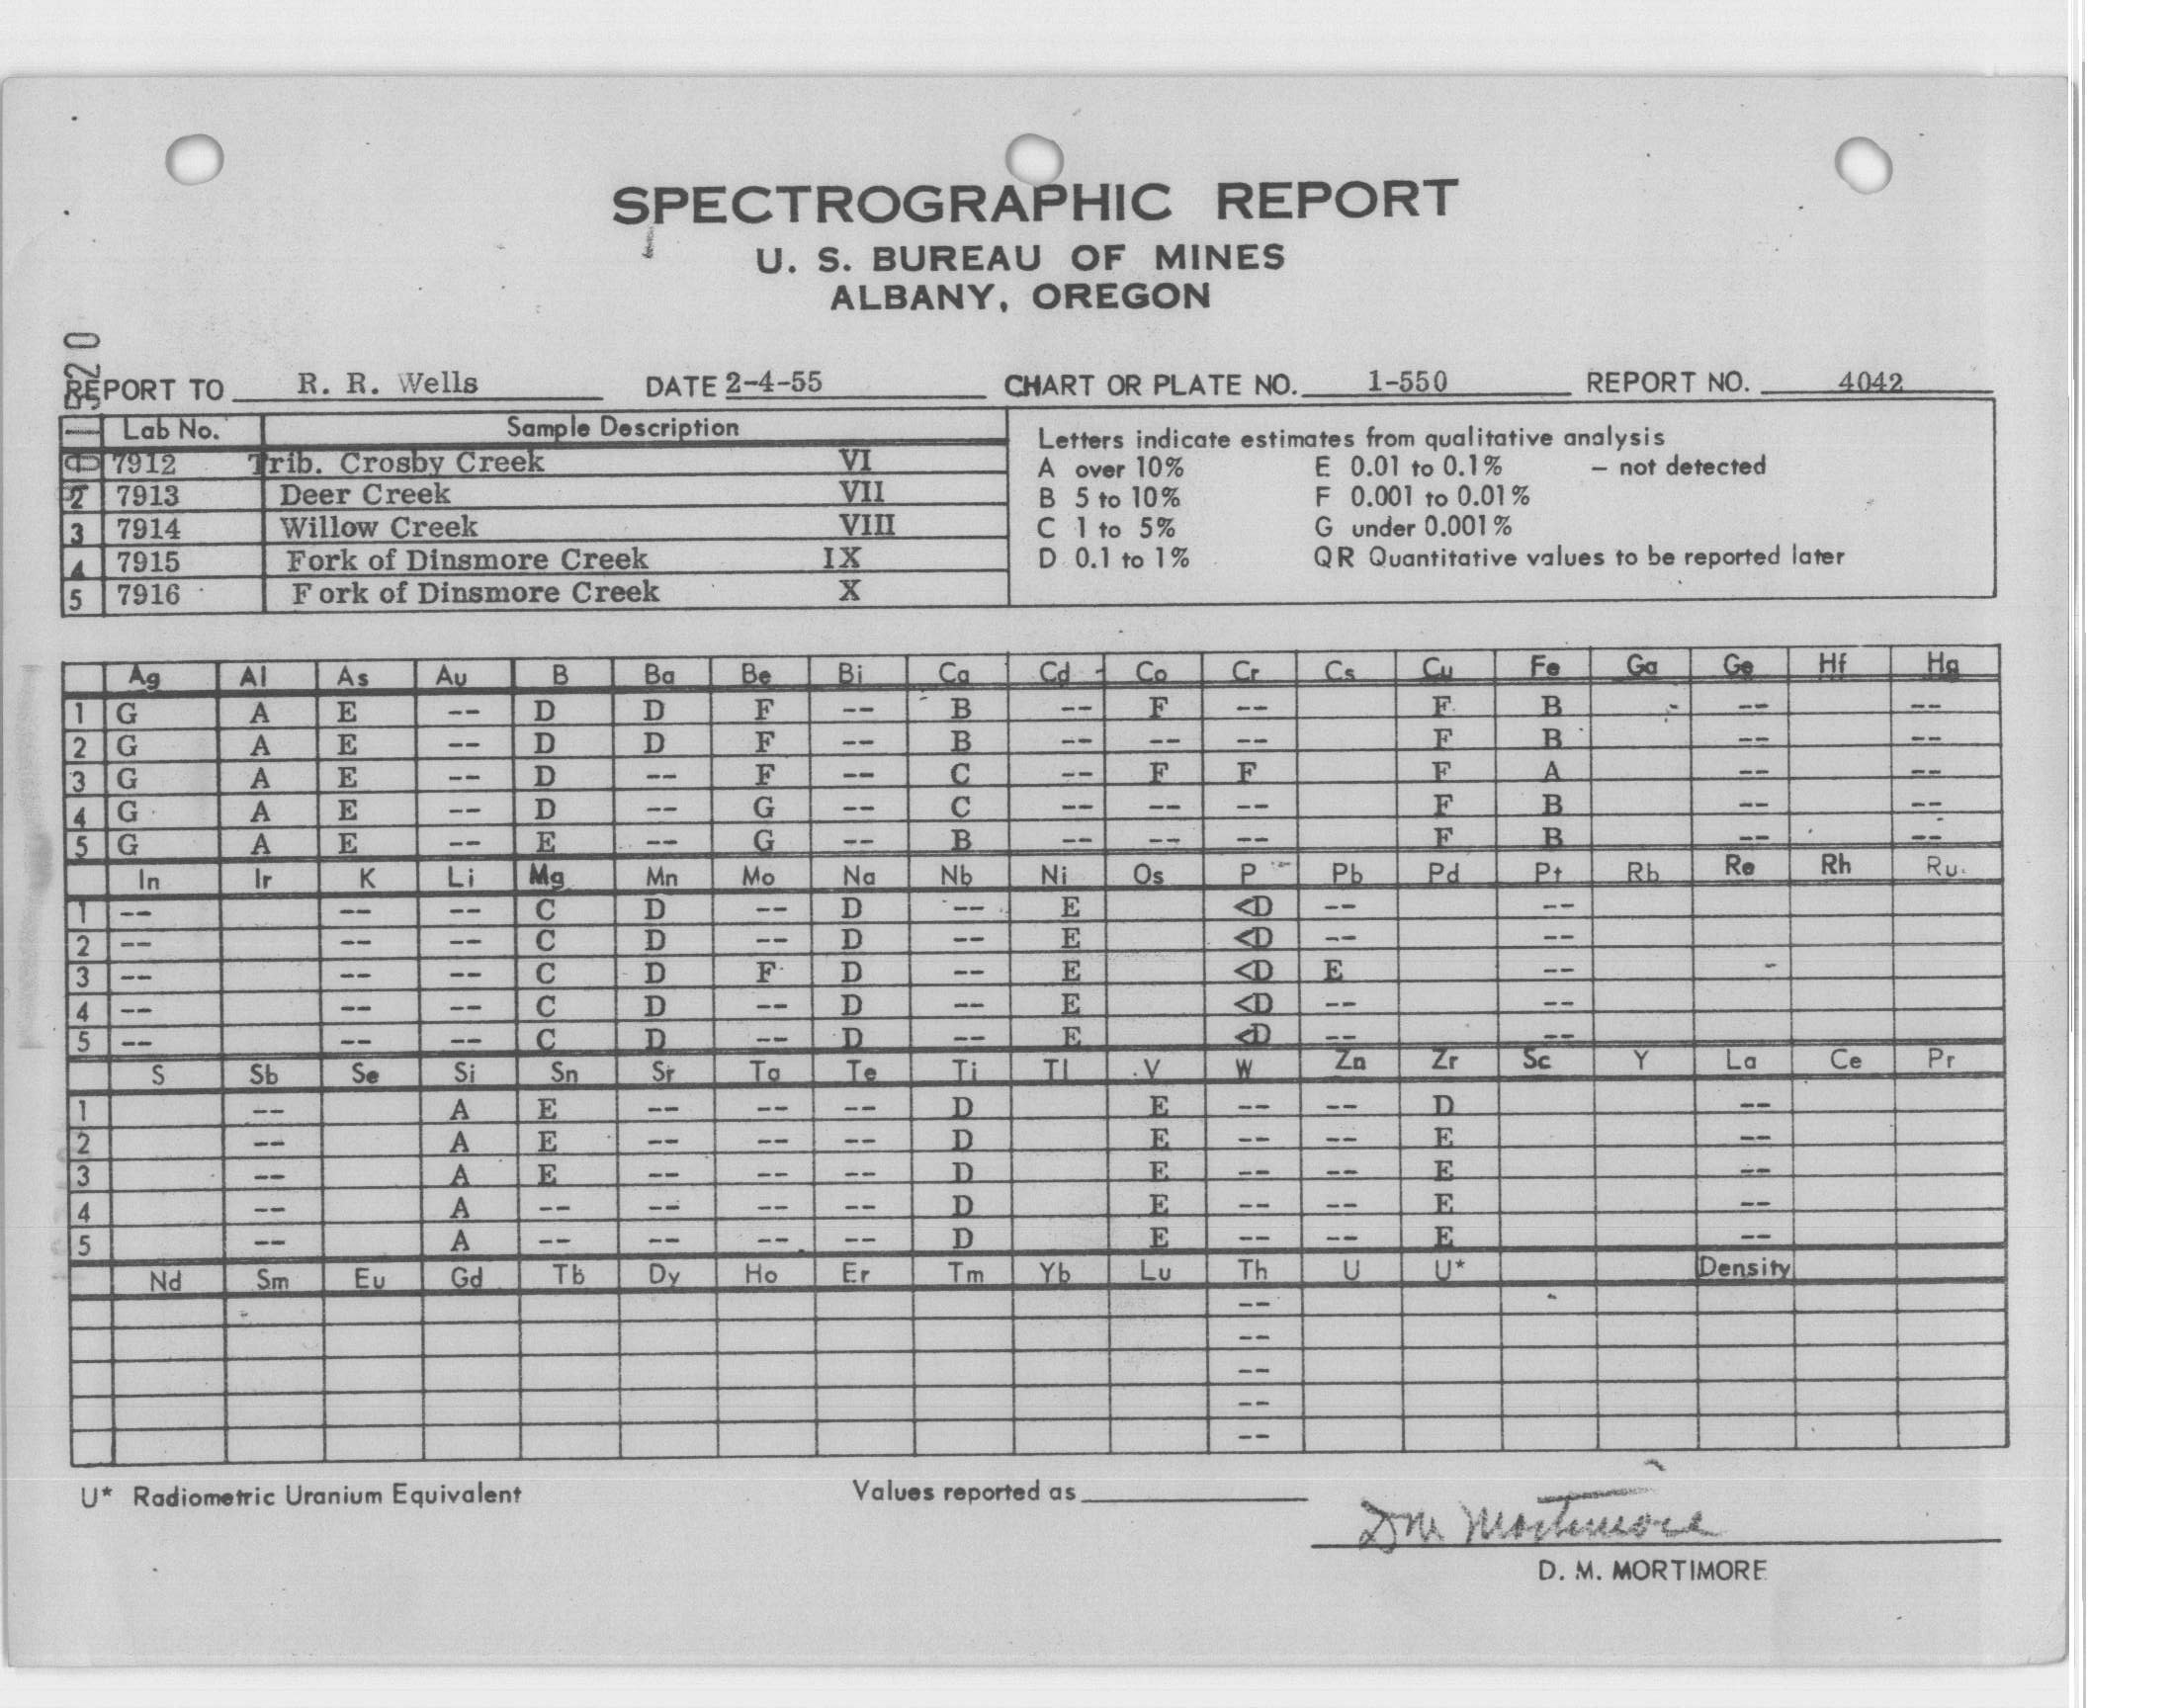 SPECTROGRAPHIC REPORT
U. S. BUREAU OF MINES
ALBANY, OREGON
REPORT TO R. R. Wells DATE 2-4-55 CHART OR PLATE NO. 1-550 REPORT NO. 4042
Lab No. Sample Description
7912 Trib. Crosby Creek VI
2 7913 Deer Creek VII
3 7914 Willow Creek VIII
4 7915 Fork of Dinsmore Creek IX
5 7916 Fork of Dinsmore Creek X
Letters indicate estimates from qualitative analysis
A over 10% E 0.01 to 0.1% – not detected
B 5 to 10% F 0.001 to 0.01%
C 1 to 5% G under 0.001%
D 0.1 to 1% QR Quantitative values to be reported later
Ag Al As Au B Ba Be Bi Ca Cd Co Cr Cs Cu Fe Ga Ge Hf Hg
1 G A E -- D D F -- B -- F -- F B -- --
2 G A E -- D D F -- B -- -- -- F B -- --
3 G A E -- D -- F -- C -- F F F A -- --
4 G A E -- D -- G -- C -- -- -- F B -- --
5 G A E -- E -- G -- B -- -- -- F B -- --
In Ir K Li Mg Mn Mo Na Nb Ni Os P Pb Pd Pt Rb Re Rh Ru
1 -- -- -- C D -- D -- E <D -- --
2 -- -- -- C D -- D -- E <D -- --
3 -- -- -- C D F D -- E <D E --
4 -- -- -- C D -- D -- E <D -- --
5 -- -- -- C D -- D -- E <D -- --
S Sb Se Si Sn Sr Ta Te Ti Tl V W Zn Zr Sc Y La Ce Pr
1 -- A E -- -- -- D E -- -- D --
2 -- A E -- -- -- D E -- -- E --
3 -- A E -- -- -- D E -- -- E --
4 -- A -- -- -- -- D E -- -- E --
5 -- A -- -- -- -- D E -- -- E --
Nd Sm Eu Gd Tb Dy Ho Er Tm Yb Lu Th U U* Density
--
--
--
--
--
U* Radiometric Uranium Equivalent Values reported as
DM Mortimore
D. M. MORTIMORE